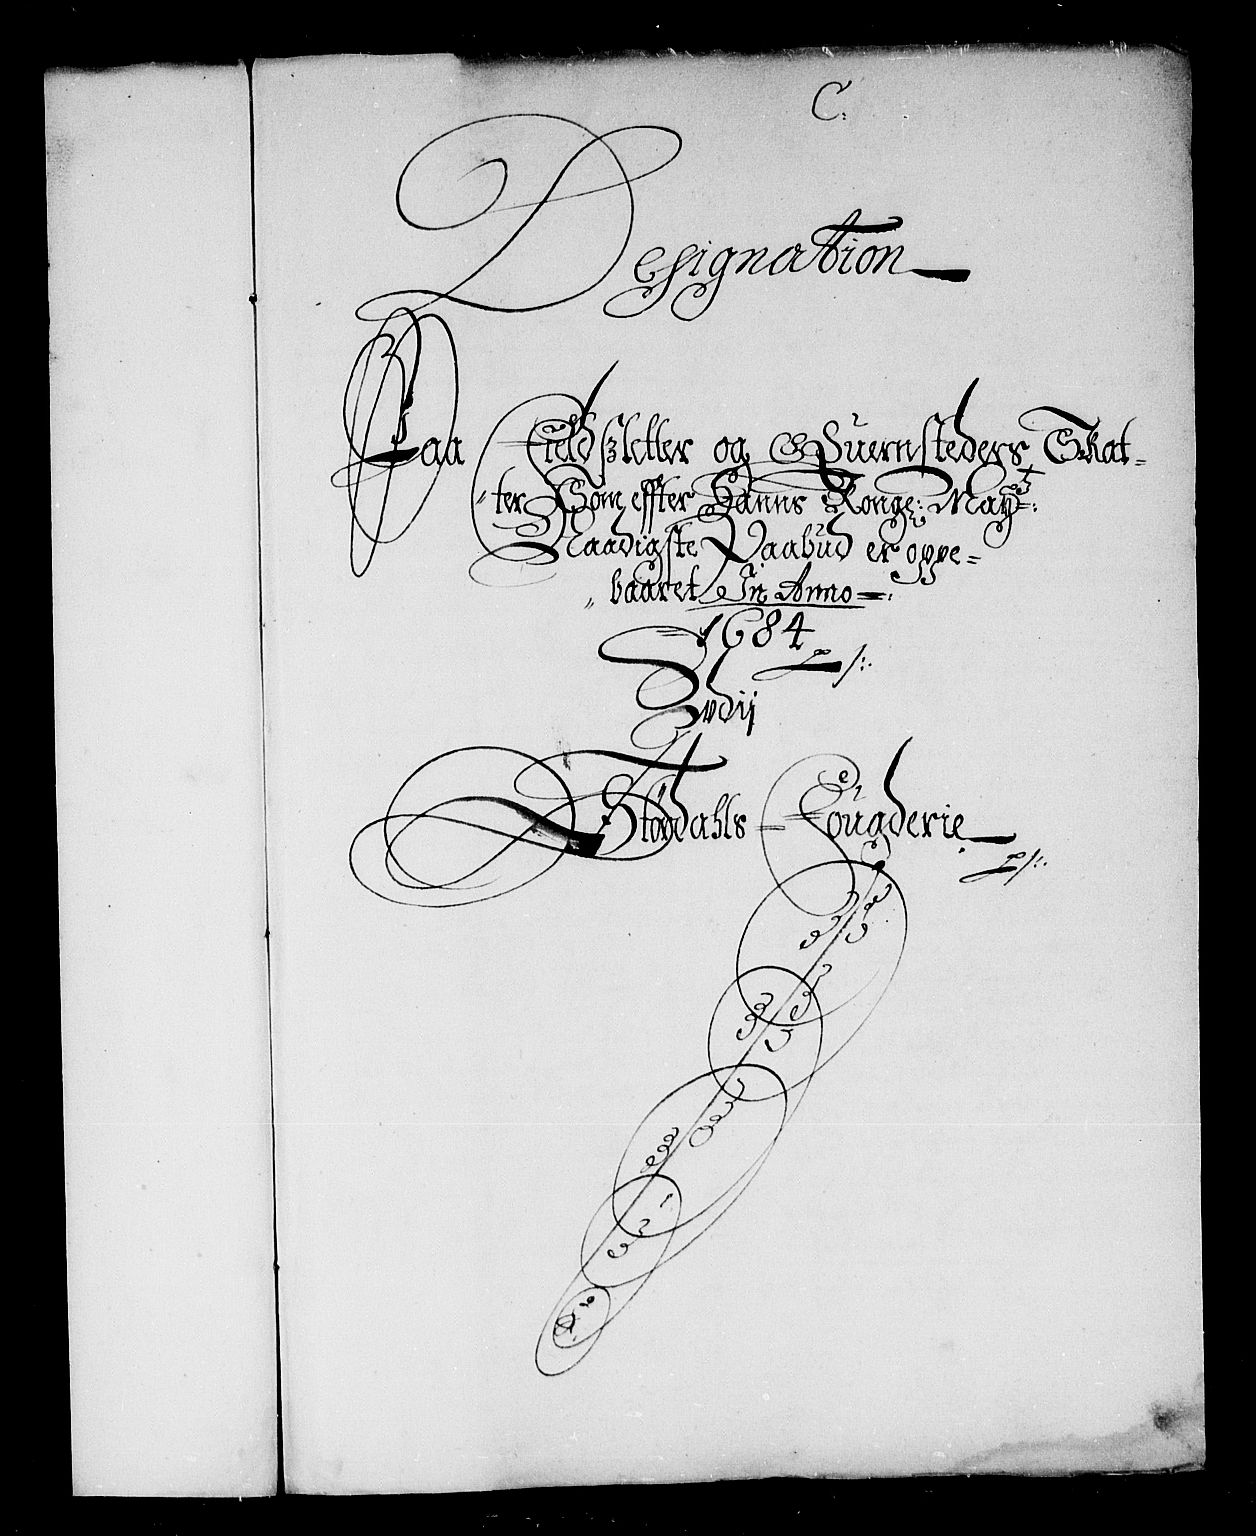 C.
Designation
Paa Field sletter og Quernsteders Skat=
ter Som effter Hanns Konge: May:tz
Naadigste Paabud er oppe=
baaret In Anno
1684
Udij
Stördahls Fougderie